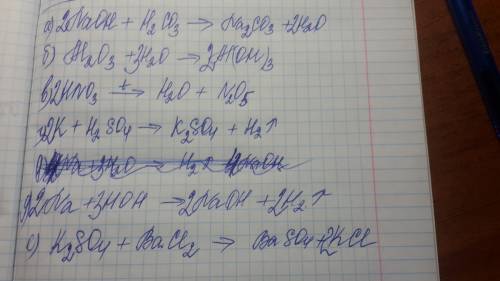 а) 2NaOH + H₂CO₃ → Na₂CO₃ + 2H₂O
б) Al₂O₃ + 3H₂O → 2Al(OH)₃
в) 2HNO₃ →ᵗ H₂O + N₂O₅
г) 2K + H₂SO₄ → K₂SO₄ + H₂↑
д) 2Na + 3HOH → 2NaOH + 2H₂↑
е) K₂SO₄ + BaCl₂ → BaSO₄ + 2KCl